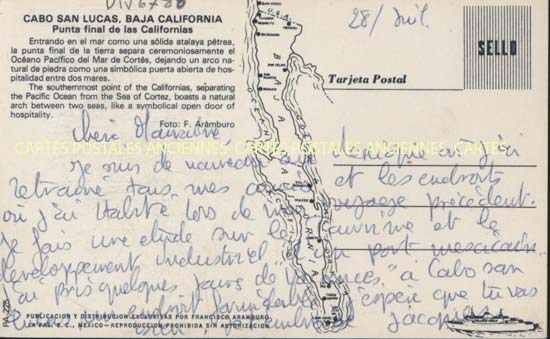 DIV6780
28/Juil.
CABO SAN LUCAS, BAJA CALIFORNIA
Punta final de las Californias
Entrando en el mar como una sólida atalaya pétrea,
la punta final de la tierra separa ceremoniosamente el
Océano Pacífico del Mar de Cortés, dejando un arco na-
tural de piedra como una simbólica puerta abierta de hos-
pitalidad entre dos mares.
The southernmost point of the Californias, separating
the Pacific Ocean from the Sea of Cortez, boasts a natural
arch between two seas, like a symbolical open door of
hospitality.
Foto: F. Arámburo
SELLO
Tarjeta Postal
BAJA CALIFORNIA
CARTES POSTALES ANCIENNES CARTES POSTALES ANCIENNES CARTES POSTALES ANCIENNES
Je suis de nouveau au Mexique
retrouve tous mes et les endroits
où j'ai habité lors de mon voyage précédent.
Je fais une étude sur le et le
développement industriel port mexicain
j'ai pris quelques jours de "vacances" à Cabo San
Lucas, un endroit formidable. J'espère que tu vas
bien, Jacques
PA-225
PUBLICACION Y DISTRIBUCION EXCLUSIVAS POR FRANCISCO ARAMBURO
LA PAZ, B. C., MEXICO—REPRODUCCION PROHIBIDA SIN AUTORIZACION